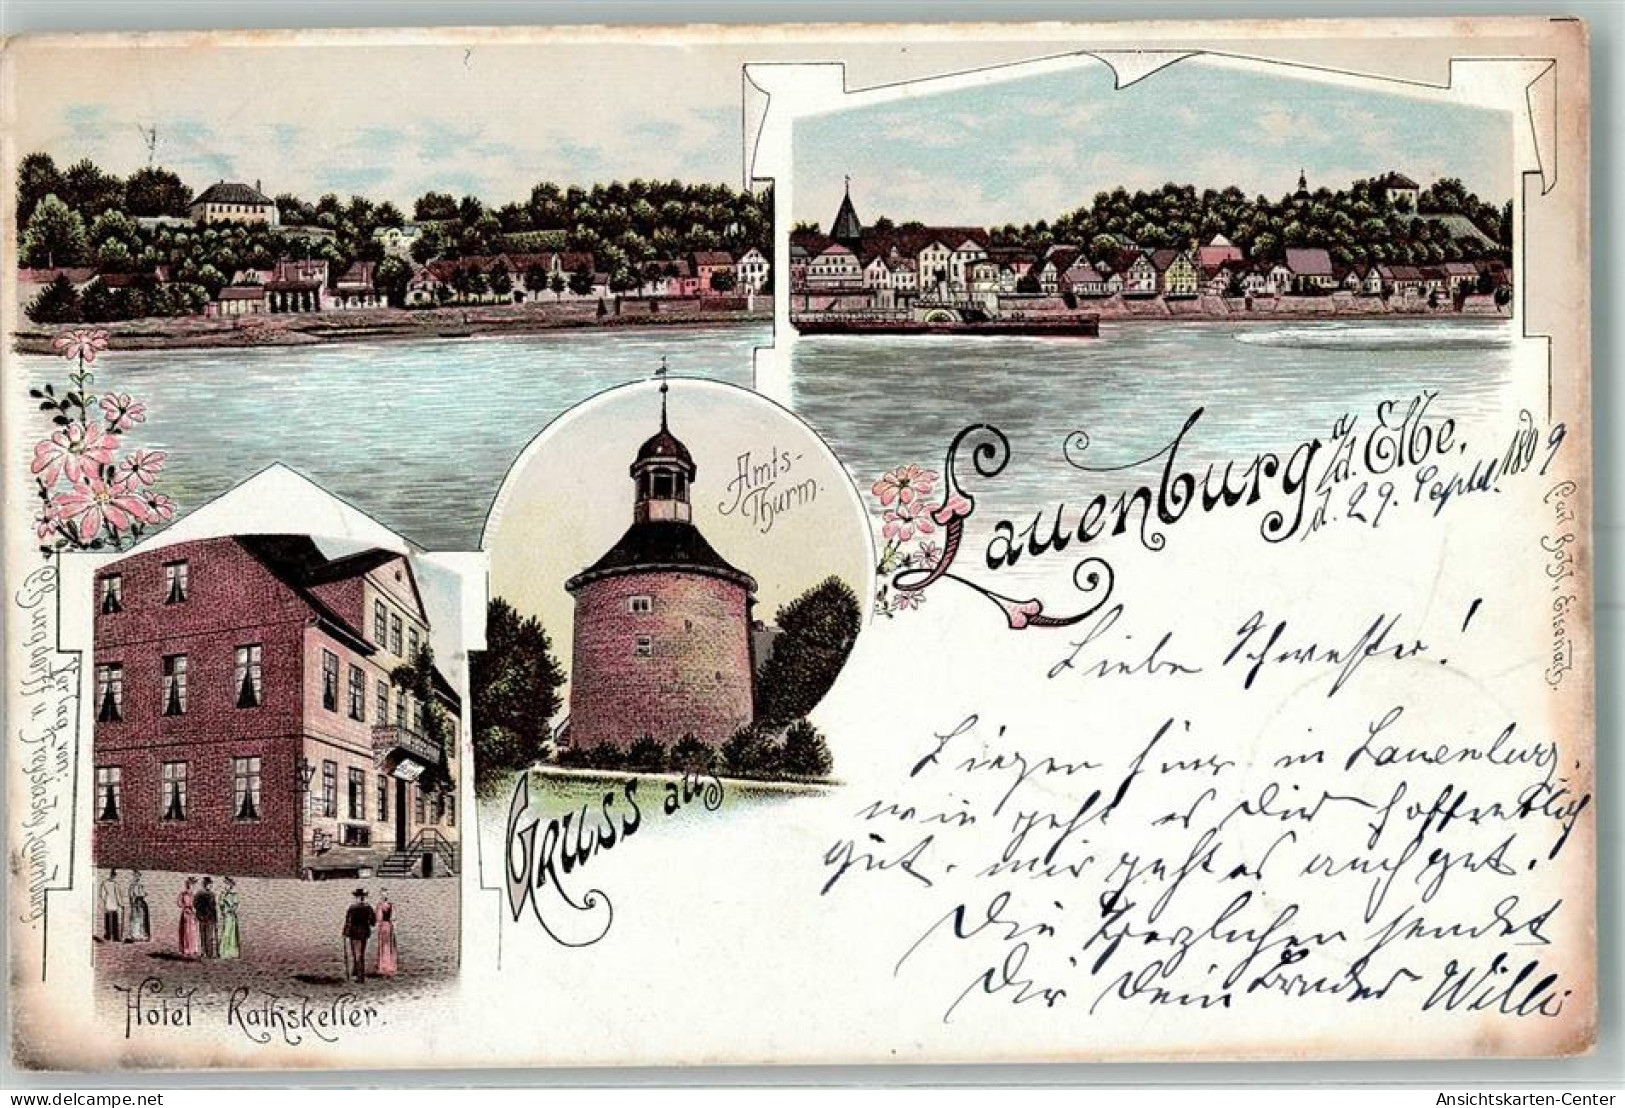 Amts-
Thurm.
Gruss aus
Lauenburg a/d. Elbe,
d. 29. Septbr. 1899
Hotel Rathskeller.
Verlag von:
C. Burgdorff u. Freystatzky, Lauenburg.
Liebe Schwester!
Liegen hier in Lauenburg.
wie geht es Dir hoffentlich
gut. mir geht es auch gut.
Die Herzlichen sendet
Dir Dein Bruder Willi
delcampe.net
Ansichtskarten-Center